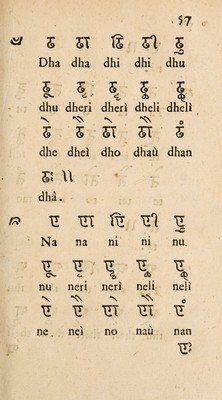 57
ढ ढा ढि ढी ढु
Dha dha dhi dhi dhu
ढू ढृ ढॄ ढॢ ढॣ
dhu dheri dherì dheli dhelì
ढे ढै ढो ढौ ढं
dhe dheì dho dhaù dhan
ढः ॥
dhâ.
ण णा णि णी णु
Na na ni ni nu
णू णृ णॄ णॢ णॣ
nu neri nerì neli nelì
णे णै णो णौ णं
ne neì no naù nan
णः